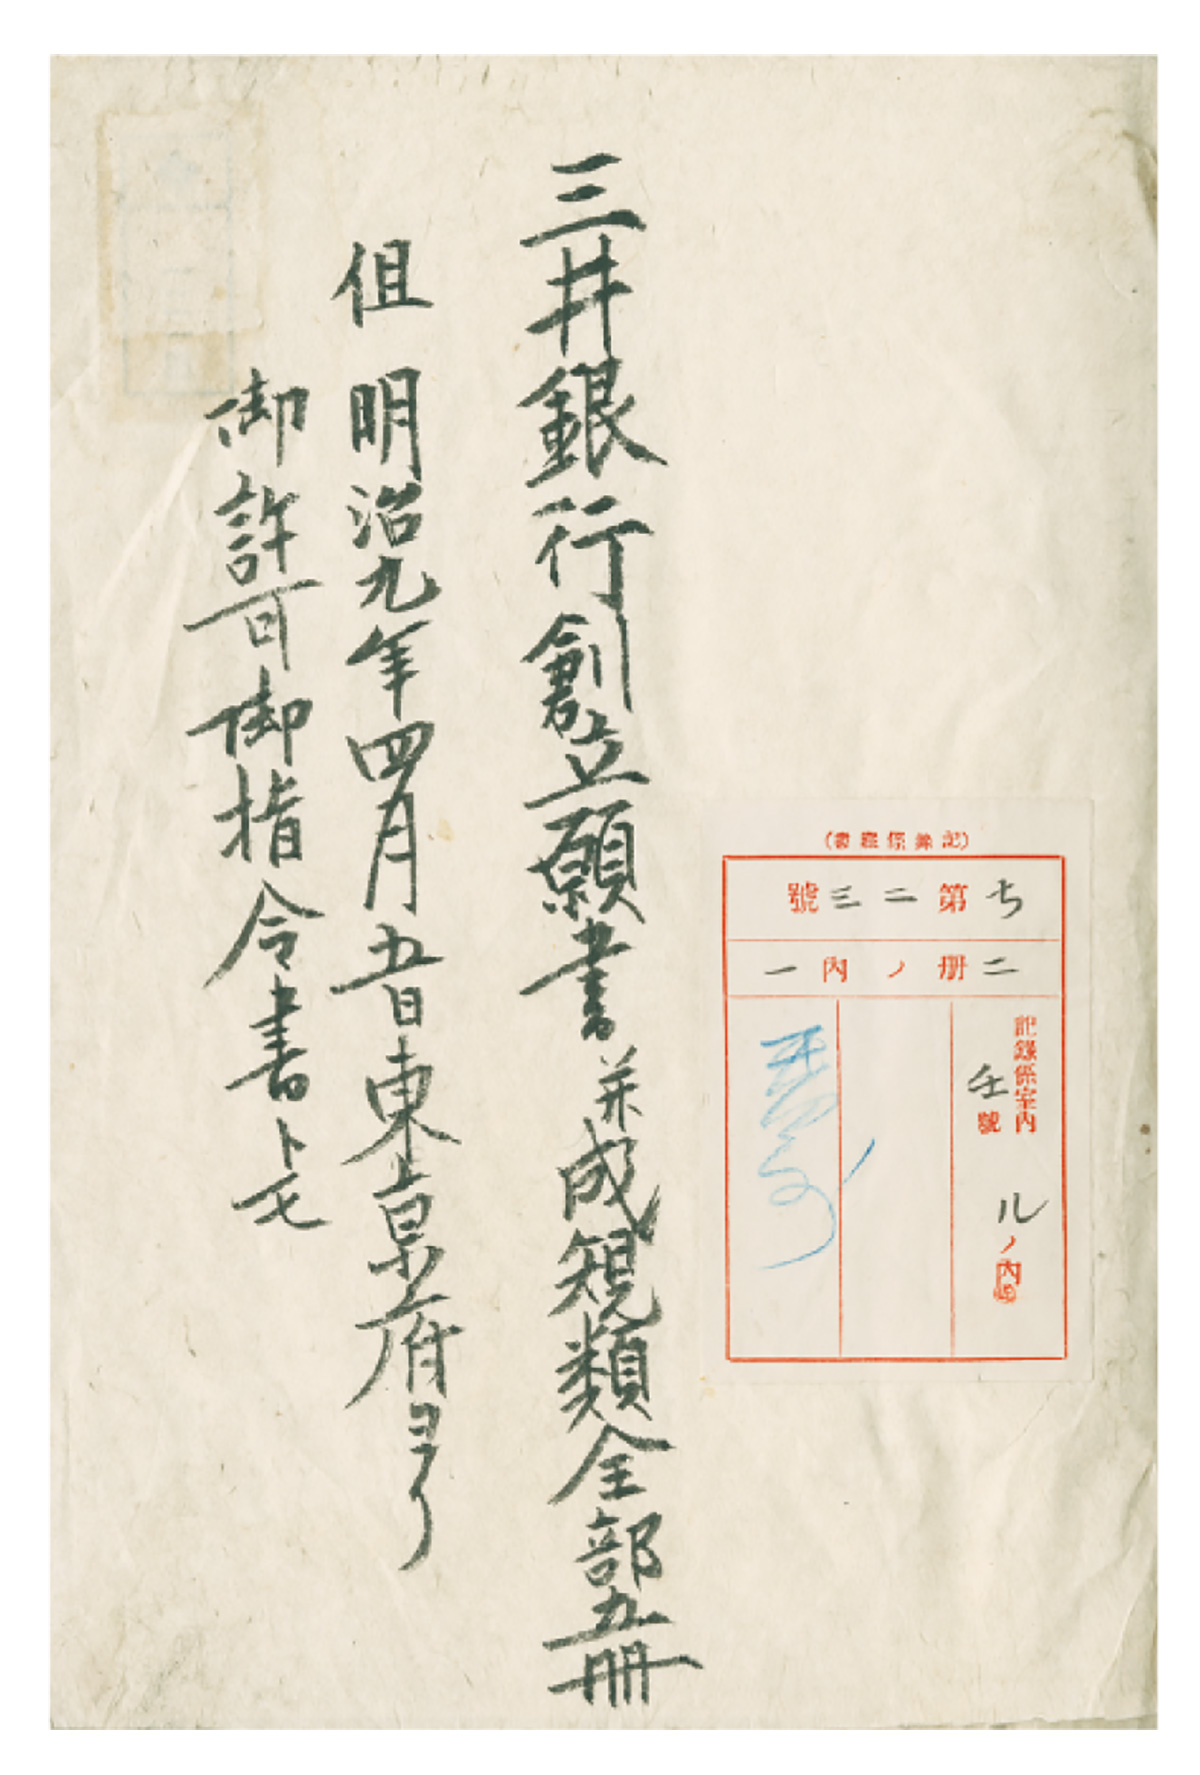 (記錄係藏書)
ち第二三號
二册ノ内一
記錄係室内
壬號 ルノ内
三井銀行創立願書并成規類全部五冊
但 明治九年四月五日東京府ヨリ
御許可御指令書トモ